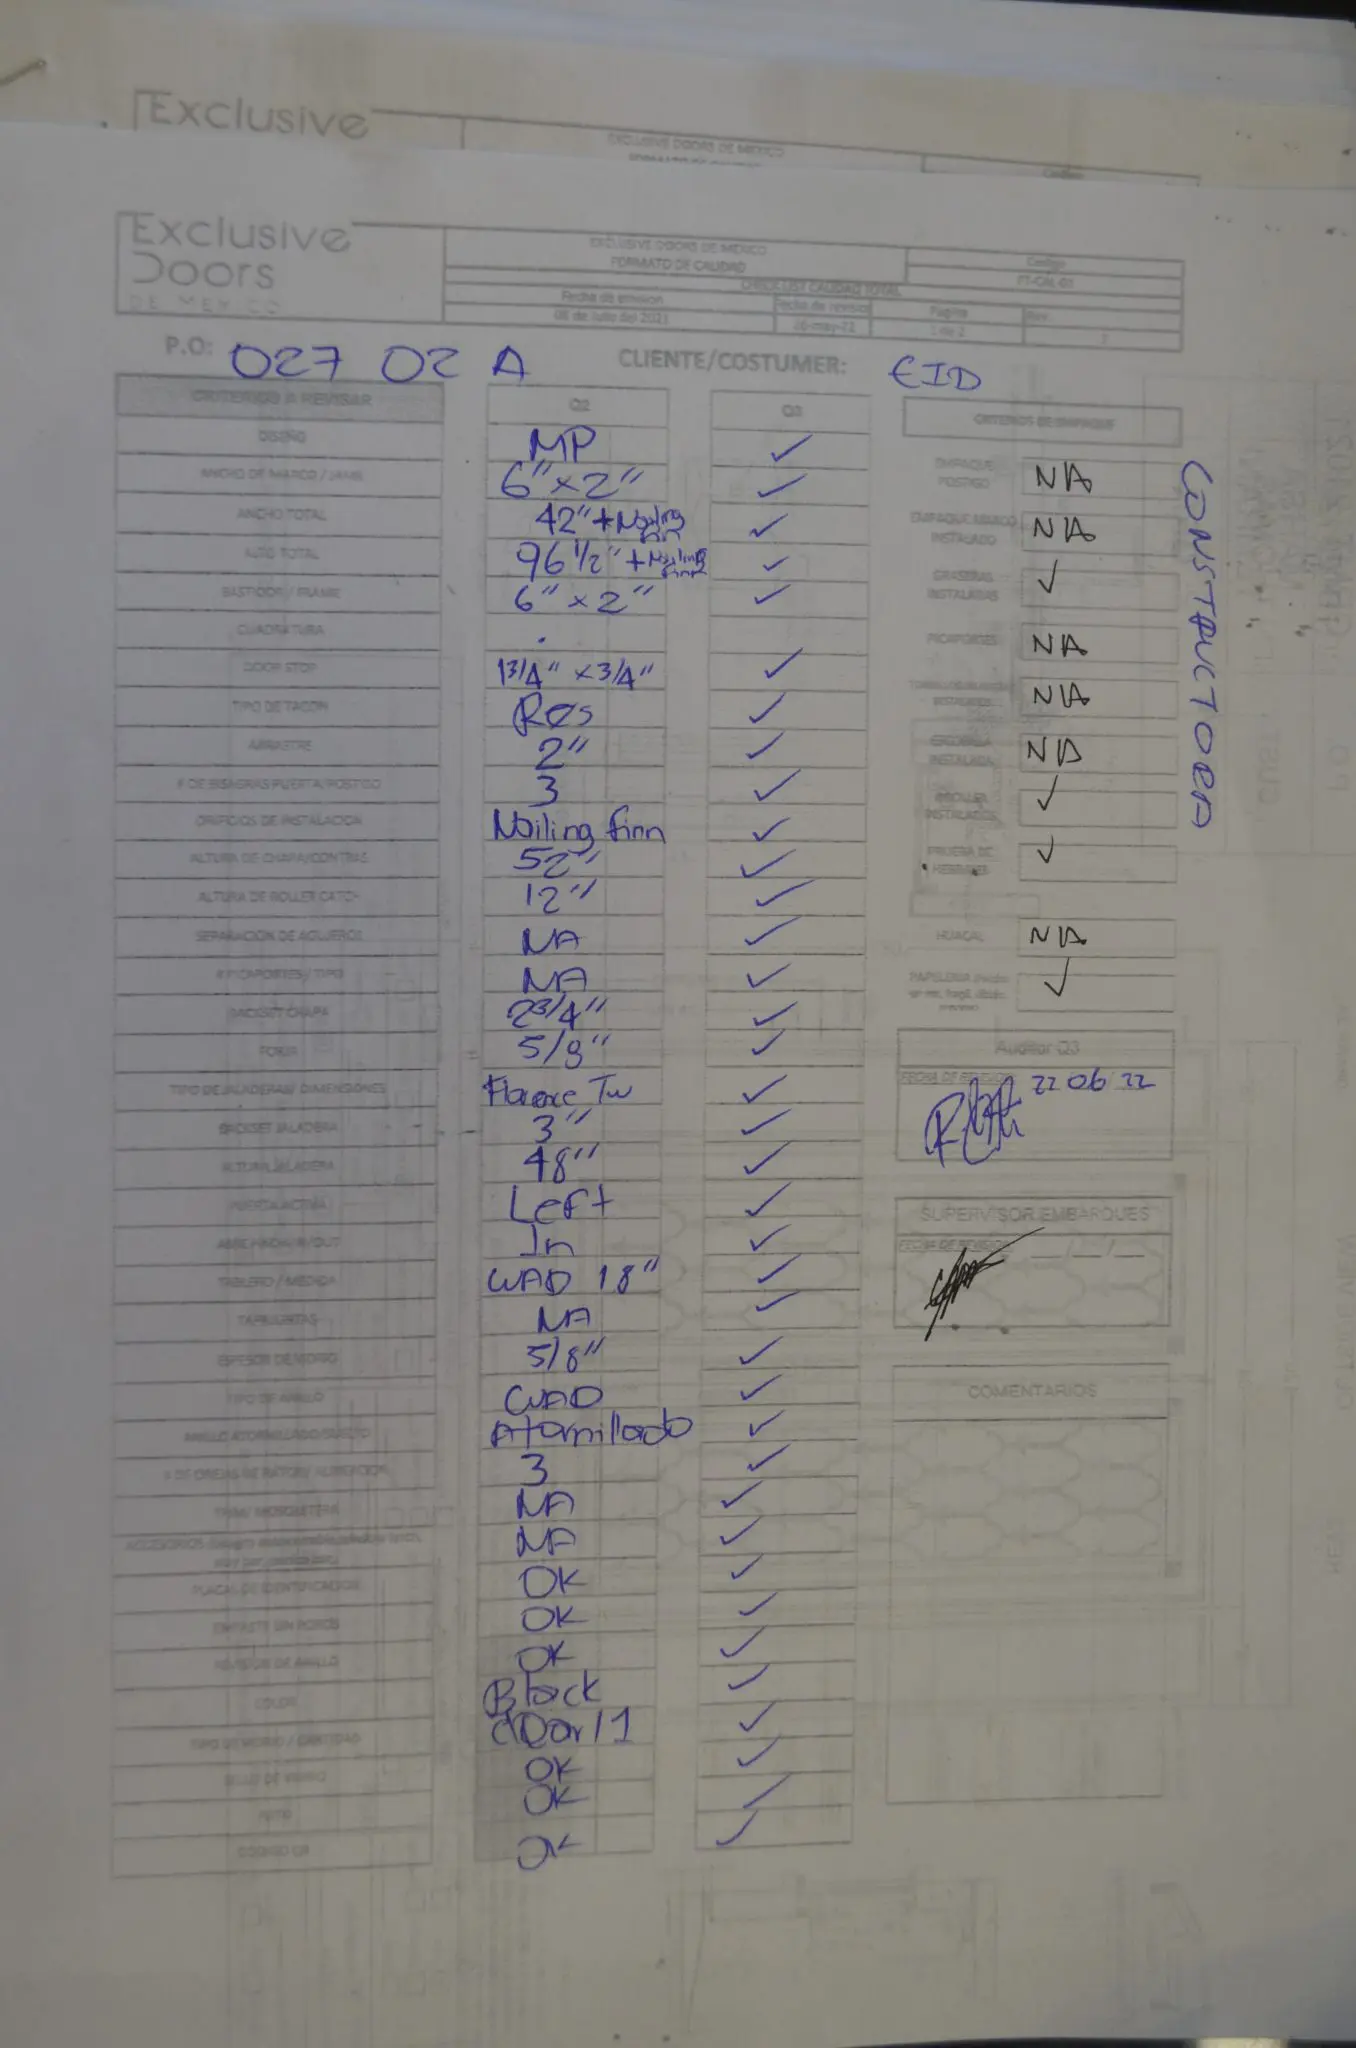 Exclusive
EXCLUSIVE DOORS DE MEXICO
Exclusive
Doors
DE MEXICO
EXCLUSIVE DOORS DE MEXICO
FORMATO DE CALIDAD
Codigo
FT-CAL-01
CHECK LIST CALIDAD TOTAL
Fecha de emision
Fecha de revision
Pagina
Rev.
05 de Julio del 2021
1 de 2
P.O: 027 02 A
CLIENTE/COSTUMER: EID
CONSTRUCTORA
CRITERIOS A REVISAR Q2 Q3
DISEÑO MP ✓
ANCHO DE MARCO / JAMB 6" x 2" ✓
ANCHO TOTAL 42" + Nailing ✓
ALTO TOTAL 96 1/2" + Nailing ✓
BASTIDOR / FRAME 6" x 2" ✓
CUADRATURA .
DOOR STOP 1 3/4" x 3/4" ✓
TIPO DE TACON Res ✓
ARRASTRE 2" ✓
# DE BISAGRAS PUERTA/POSTIGO 3 ✓
ORIFICIOS DE INSTALACION Nailing finn ✓
ALTURA DE CHAPA/CONTRAS 52" ✓
ALTURA DE ROLLER CATCH 12" ✓
SEPARACION DE AGUJEROS NA ✓
# PICAPORTES / TIPO NA ✓
BACKSET CHAPA 2 3/4" ✓
FORJA 5/8" ✓
TIPO DE JALADERAS/ DIMENSIONES ✓
BACKSET JALADERA 3" ✓
ALTURA JALADERA 48" ✓
PUERTA ACTIVA Left ✓
ABRE HACIA IN/OUT In ✓
TABLERO / MEDIDA CUAD 18" ✓
NA ✓
ESPESOR DE VIDRIO 5/8" ✓
TIPO DE ANILLO CUAD ✓
ANILLO ATORNILLADO/SUELTO Atornillado ✓
3 ✓
NA ✓
ACCESORIOS NA ✓
PLACAS DE IDENTIFICACION OK ✓
OK ✓
REVISION DE ANILLO OK ✓
COLOR Black ✓
TIPO DE VIDRIO / CANTIDAD ✓
SELLO DE VIDRIO OK ✓
OK ✓
CODIGO QR OK ✓
CRITERIOS DE EMPAQUE
EMPAQUE POSTIGO NA
EMPAQUE MARCO INSTALADO NA
GRASERAS INSTALADAS ✓
PICAPORTES NA
NA
INSTALADA NA
ROLLER INSTALADOS ✓
PRUEBA DE ✓
HUACAL NA
PAPELERIA ✓
Auditor Q3
FECHA DE REVISION 22 06 22
SUPERVISOR EMBARQUES
FECHA DE REVISION __/__/__
COMENTARIOS